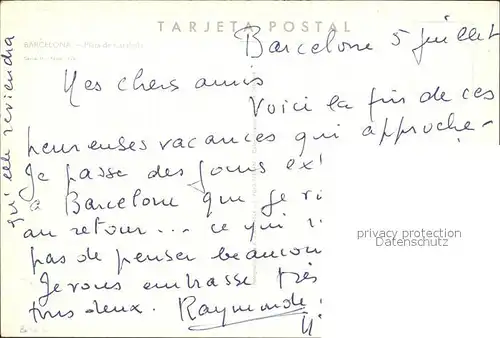 TARJETA POSTAL
BARCELONA
Barcelone 5 juillet
Mes chers amis
Voici la fin de ces
heureuses vacances qui approche -
Je passe des jours ex
à Barcelone que je
au retour... ce qui
pas de penser beaucou
Je vous embrasse très
tous deux. Raymonde
qu'elle reviendra
privacy protection
Datenschutz